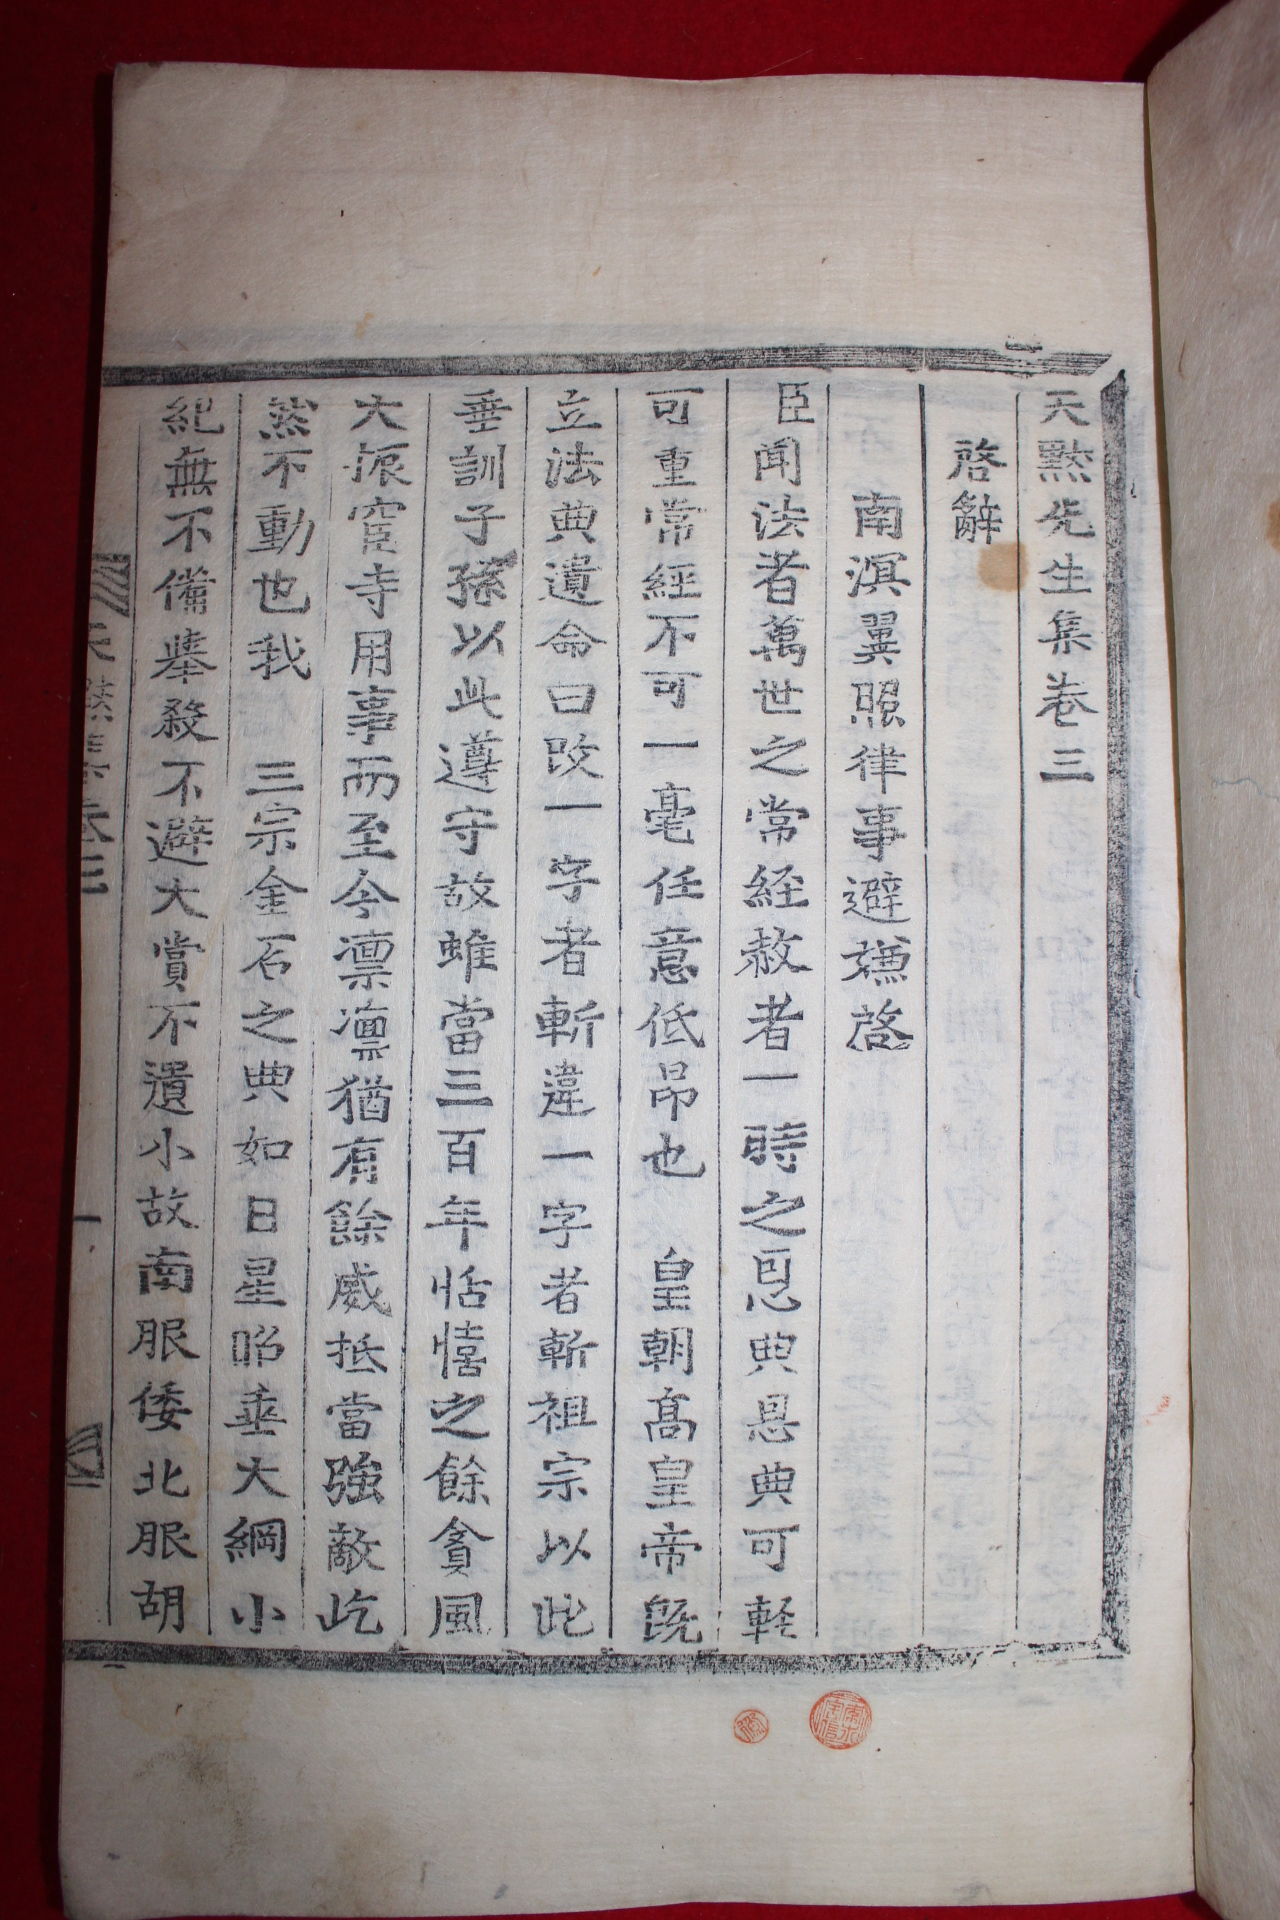 天默先生集卷三
啓辭
南溟翼照律事避嫌啓
臣聞法者萬世之常経赦者一時之恩典恩典可軽
可重常經不可一毫任意低昂也 皇朝髙皇帝旣
立法典遺命曰改一字者斬違一字者斬祖宗以此
垂訓子孫以此遵守故雖當三百年恬憘之餘貪風
大振宦寺用事而至今凛凛猶有餘威抵當強敵屹
然不動也我 三宗金石之典如日星昭垂大綱小
紀無不備擧殺不避大賞不遺小故南服倭北服胡